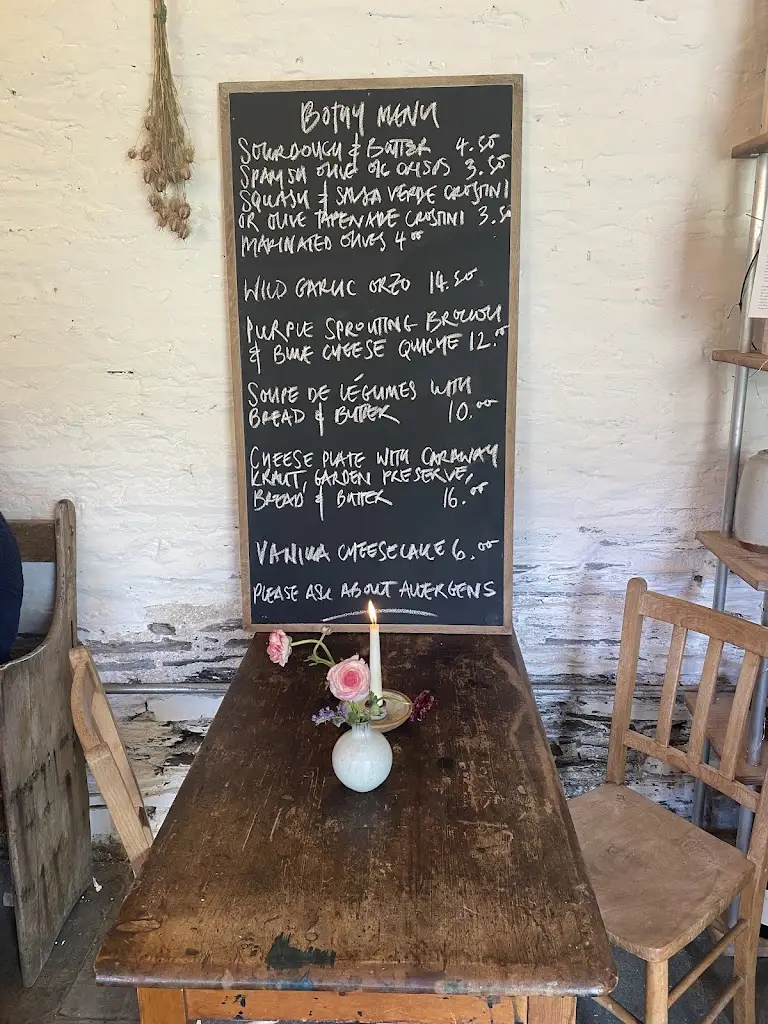 BOTHY MENU
SOURDOUGH & BUTTER 4.50
SPANISH OLIVE OIL CRISPS 3.50
SQUASH & SALSA VERDE CROSTINI
OR OLIVE TAPENADE CROSTINI 3.50
MARINATED OLIVES 4.00
WILD GARLIC ORZO 14.50
PURPLE SPROUTING BROCCOLI
& BLUE CHEESE QUICHE 12.00
SOUPE DE LÉGUMES WITH
BREAD & BUTTER 10.00
CHEESE PLATE WITH CARAWAY
KRAUT, GARDEN PRESERVE,
BREAD & BUTTER 16.00
VANILLA CHEESECAKE 6.00
PLEASE ASK ABOUT ALLERGENS